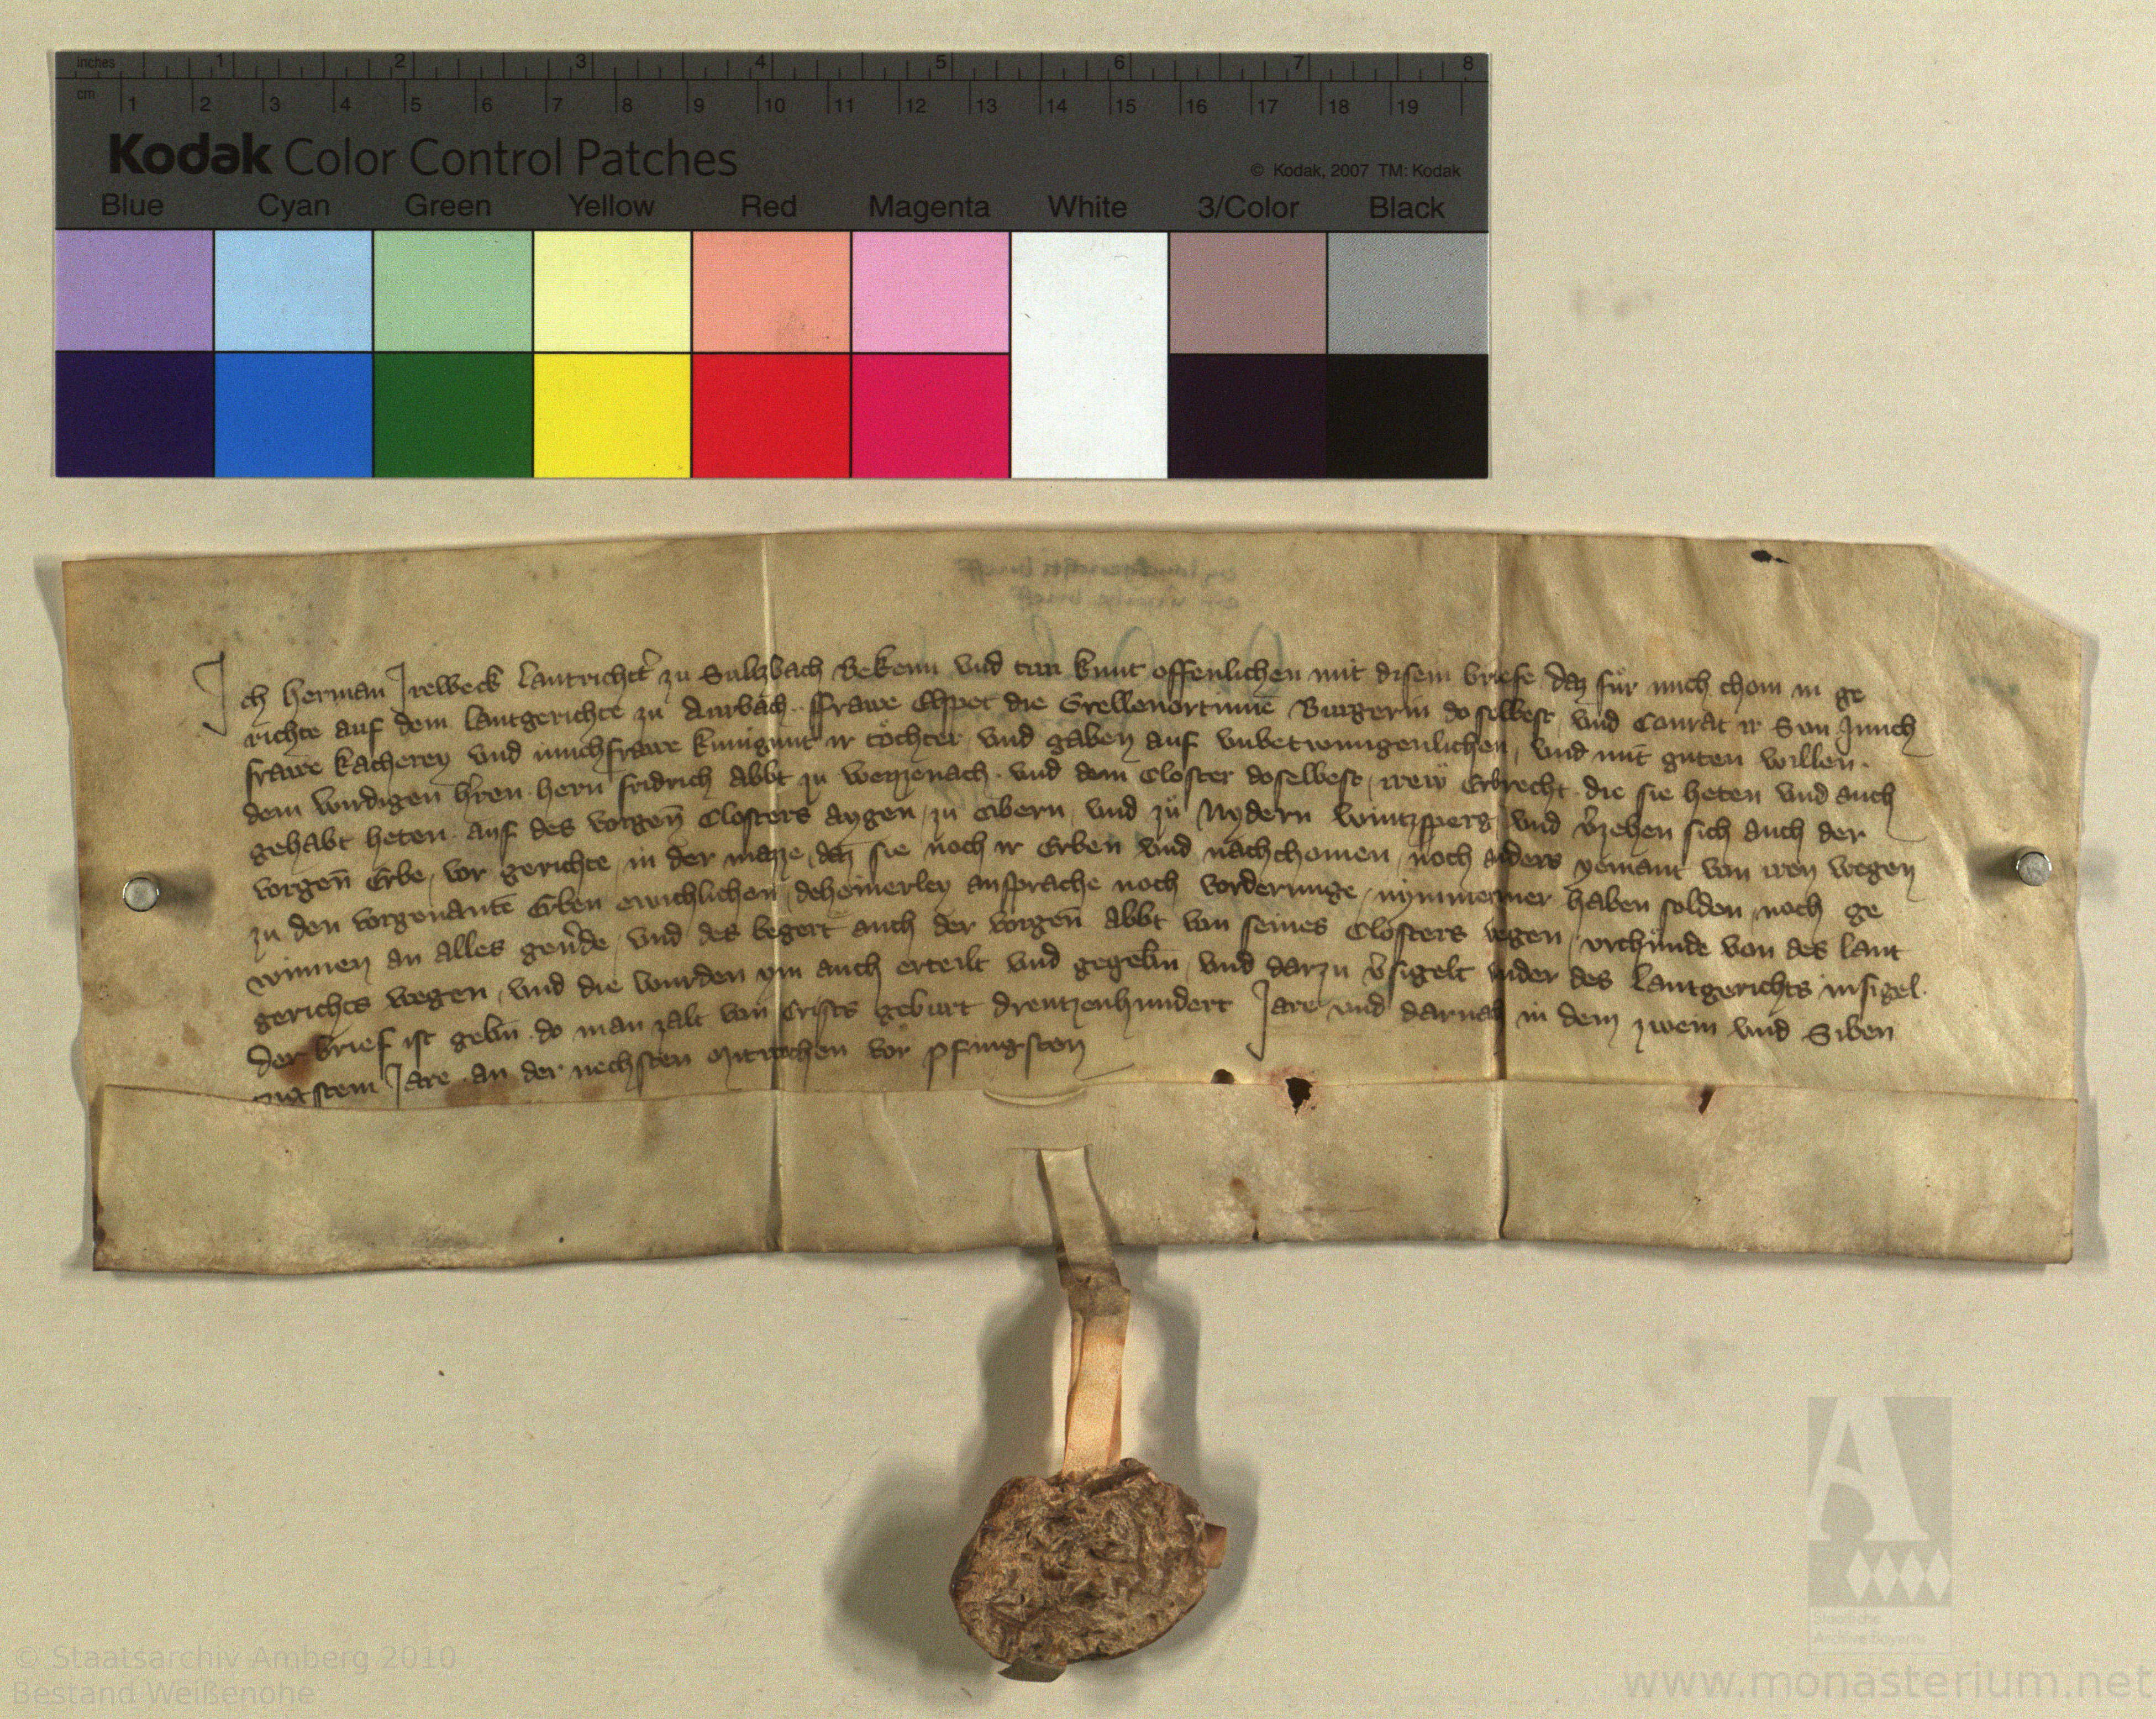 inches 1 2 3 4 5 6 7 8
cm 1 2 3 4 5 6 7 8 9 10 11 12 13 14 15 16 17 18 19
Kodak Color Control Patches
© Kodak, 2007 TM: Kodak
Blue Cyan Green Yellow Red Magenta White 3/Color Black
Ich herman Irelbeck lantricht̉ zu Sulzbach Bekenn vnd tun kunt offenlichen mit disem briefe daz fur mich chom in ge
richte auf dem lantgerichte zu Aurbach ffrawe Elspet die Grellenortinne Burgerin doselbest vnd Conrat ir Sun Junch
frawe katherey vnd iunchfrawe kunigunt ir töchter vnd gaben auf vnbetwungenlichen, vnd mit guten willen.
dem wirdigen h̉ren hern fridrich Abbt zu weyzenach vnd dem Closter doselbest, irew Erbrecht die sie heten vnd auch
gehabt heten auf des vorgen̄ Closters aygen, zu Obern, vnd zů Nydern wintzsperg vnd v̉zehen sich auch der
vorgen̄ Erbe, vor gerichte, in der mazze, daz sie noch ir Erben vnd nachchomen, noch anders yemant von iren wegen
zu den vorgenantē Erben ewichlichen, deheinerley ansprache noch vorderunge, nymmermer haben solden, noch ge
winnen an alles geủde, vnd des begert auch der vorgen̄ Abbt von seines Closters wegen, vrchunde von des lant
gerichts wegen, vnd die wurden ym auch erteilt vnd gegebn̄, vnd darzu v̉sigelt vnder des lantgerichts insigel.
Der brief ist gebn̄ do man zalt von Crists geburt dreutzenhundert Jare vnd darnach in dem zwein vnd Siben
tzigstem Jare an der nechsten Mitwochen vor pfingsten
Staatliche
Archive Bayerns
© Staatsarchiv Amberg 2010
Bestand Weißenohe
www.monasterium.net